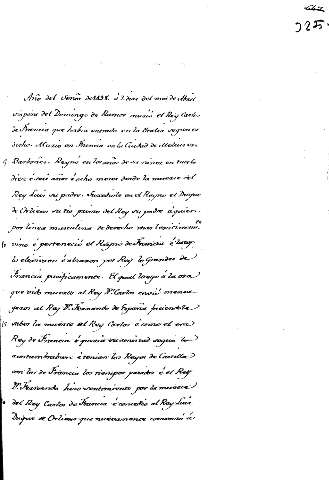 325.
Año del Señor de 1498. á 7 dias del mes de Abril
vispera del Domingo de Ramos murió el Rey Carlos
de Francia que habia entrado en la Italia segun es
dicho. Murió en Francia en la Ciudad de
Reynó en los años de su
diez é seis años é ocho meses desde la muerte del
Rey Luis su padre. Sucedióle en el Reyno el Duque
de Orliens su tio primo del Rey su padre á quien
por linea masculina de derecho
vino é perteneció el Reyno de Francia é luego
lo eligieron é alzaron por Rey los Grandes de
Francia pacificamente. El qual luego á la ora
que vido muerto al Rey D. Carlos envió mensa-
geros al Rey D. Fernando de España faciendole
saber la muerte del Rey Carlos é como él era
Rey de Francia é queria su amistad segun la
acostumbraban é tenian los Reyes de Castilla
con los de Francia los tiempos pasados é el Rey
D. Fernando hizo sentimiento por la muerte
del Rey Carlos de Francia é consoló al Rey Luis
Duque de Orliens que nuevamente comenzó á